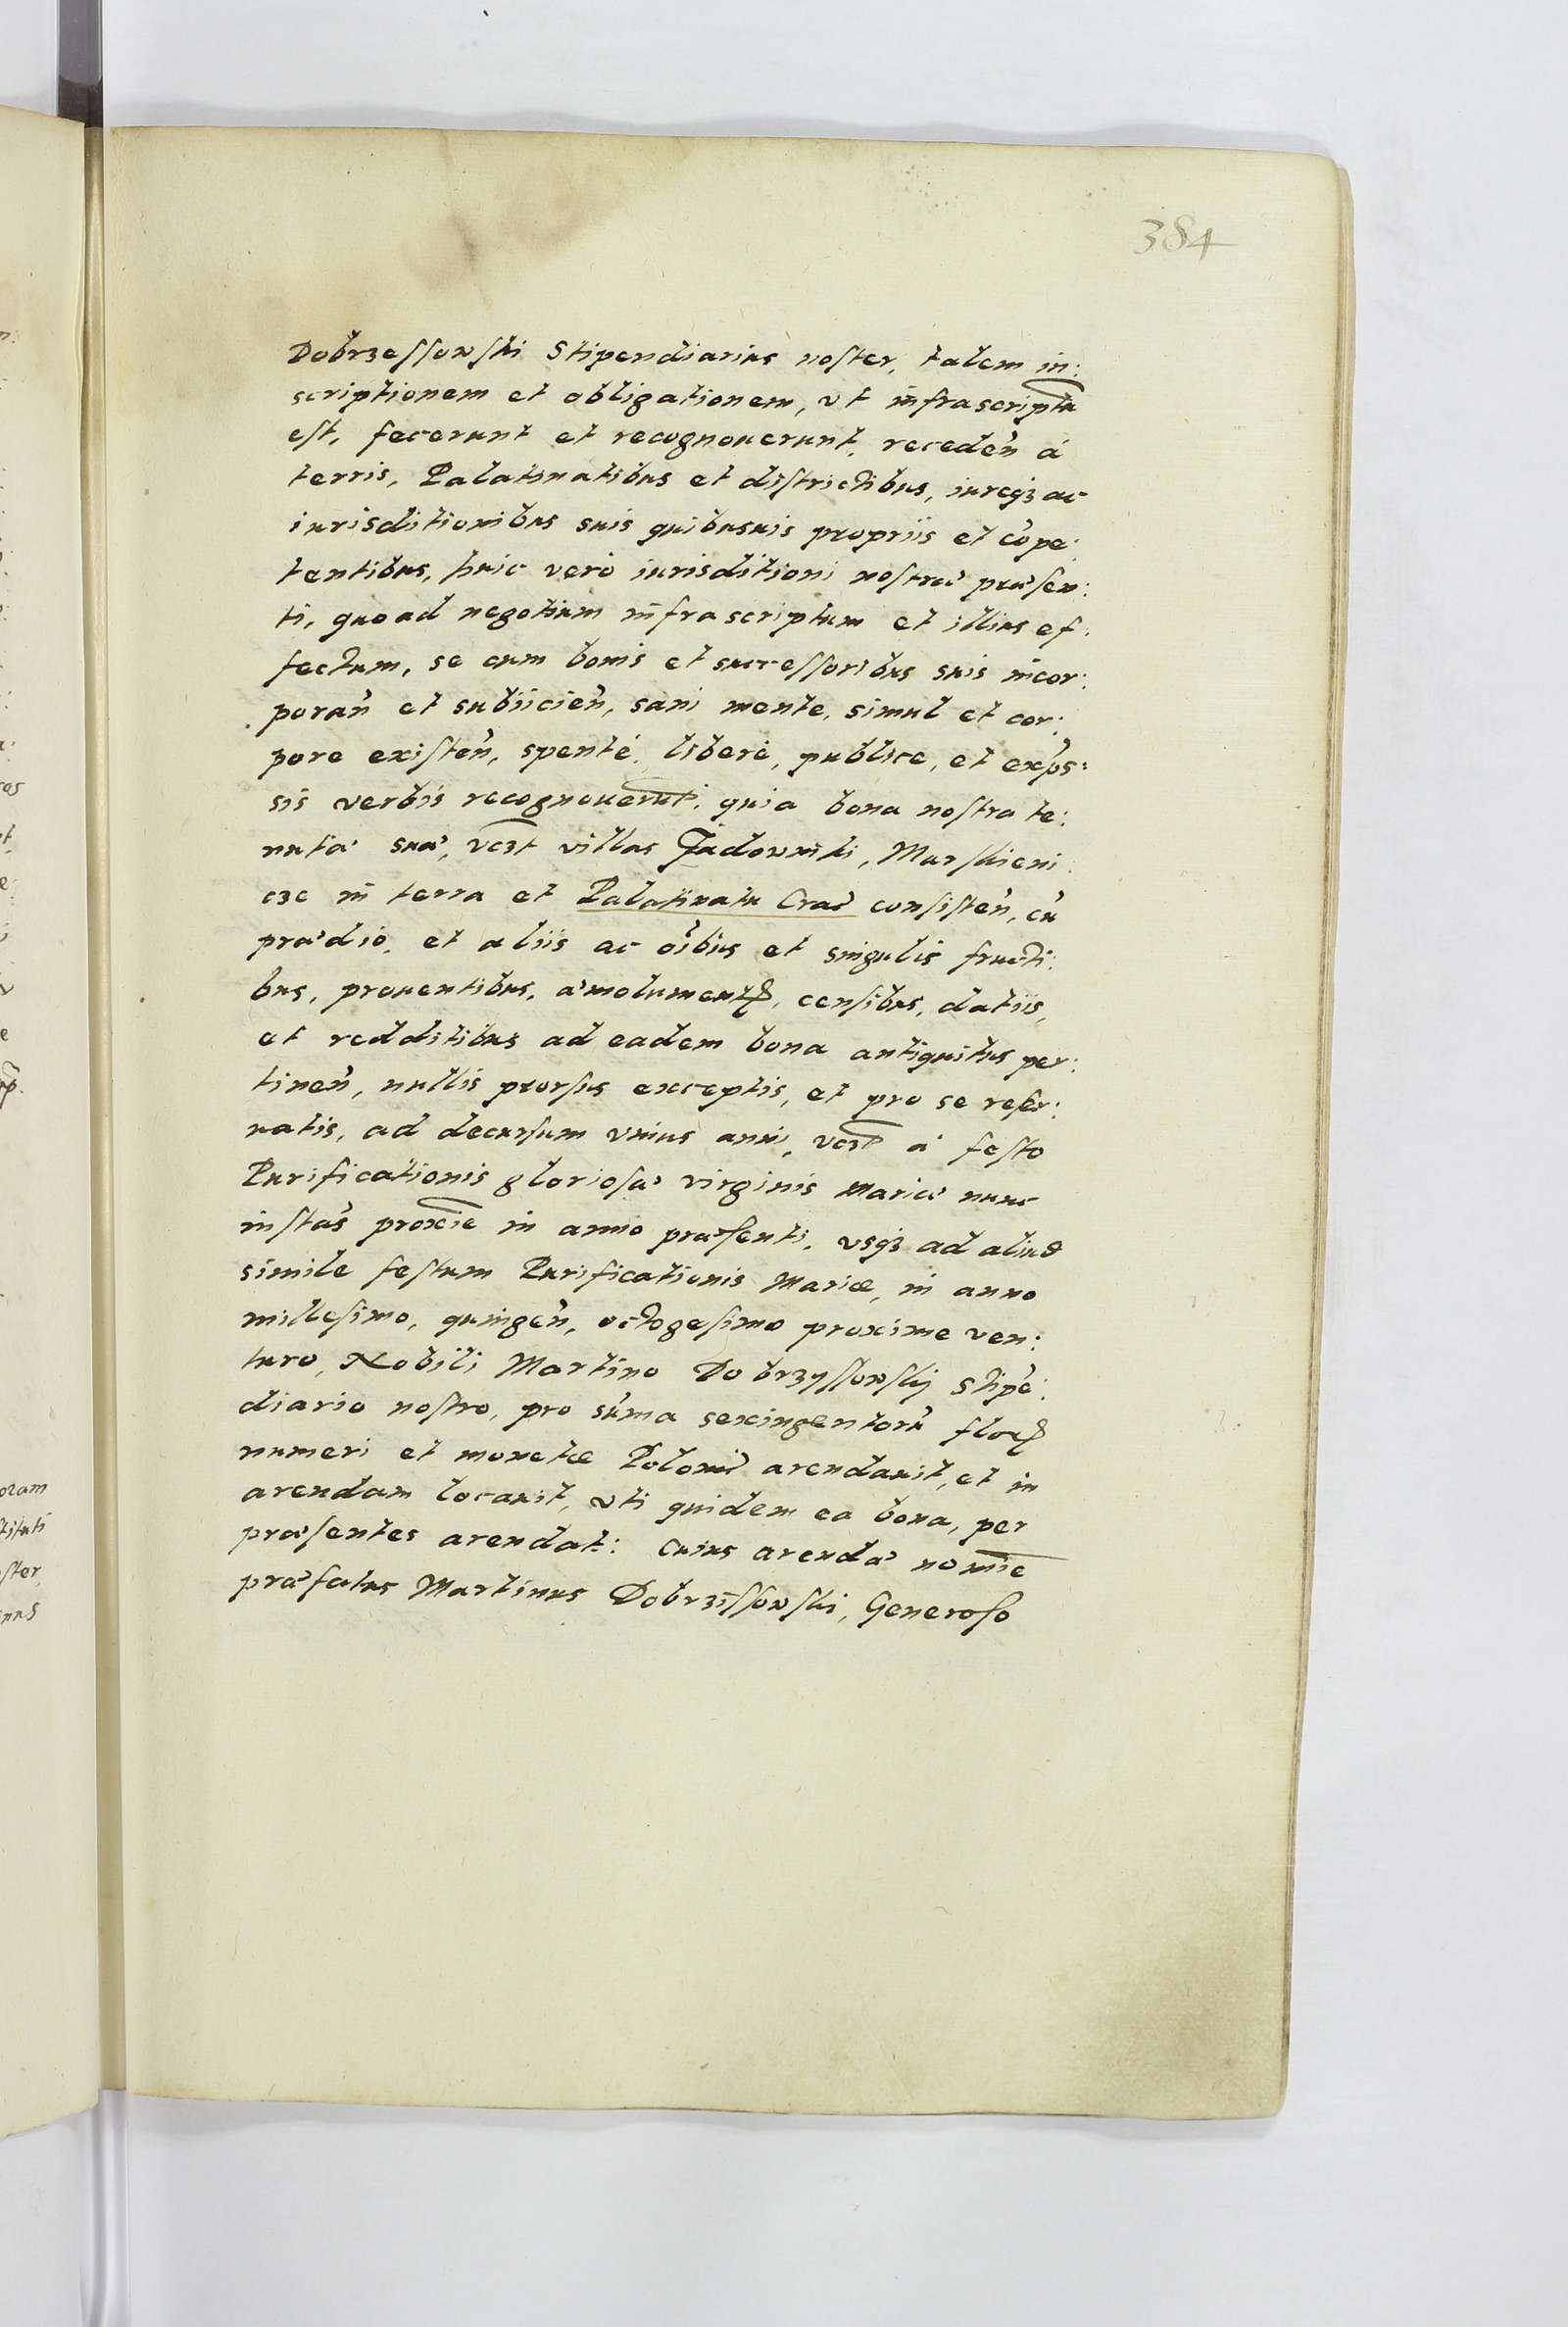 384
Dobrzessowski Stipendiarius noster, talem in:
scriptionem et obligationem, vt infrascriptū
est, fecerunt et recognouerunt, receden̄ à
terris, Palatinatibus et districtibus, iureqꝫ ac
iurisditionibus suis quibusuis propriis et cōpe:
tentibus, huic verò iurisditioni nostræ præsen:
ti, quoad negotium infrascriptum et illius ef:
fectum, se cum bonis et successoribus suis incor:
poran̄ et subiicien̄, sani mente, simul et cor:
pore existen̄, sponté, liberè, publice, et exp̄s:
sis verbis recognouerūt, quia bona nostra te:
nutæ suæ, vczt villas Jadowniki, Marskieni
cze in terra et Palatinatu Crac̄ consisten̄, cū
prædio, et aliis ac oībus et singulis fructi:
bus, prouentibus, æmolumentꝭ, censibus, datiis,
et redditibus ad eadem bona antiquitus per:
tinen̄, nullis prorsus exceptis, et pro se reser:
uatis, ad decursum vnius anni, vczt à festo
Purificationis gloriosæ virginis Mariæ nunc
instās proxīe in anno præsenti, vsqꝫ ad aliud
simile festum Purificationis Mariæ, in anno
millesimo, quingen̄, octogesimo proxime ven:
turo, Nobili Martino Dobrzyssowskij Stipē:
diario nostro, pro sūma sexingentorū floꝝ
numeri et monetæ Polonic̄ arendauit, et in
arendam locauit, vti quidem ea bona, per
præsentes arendat: Cuius arendæ nomīe
præfatus Martinus Dobrzissowski, Generoso
oram
stituti
oster